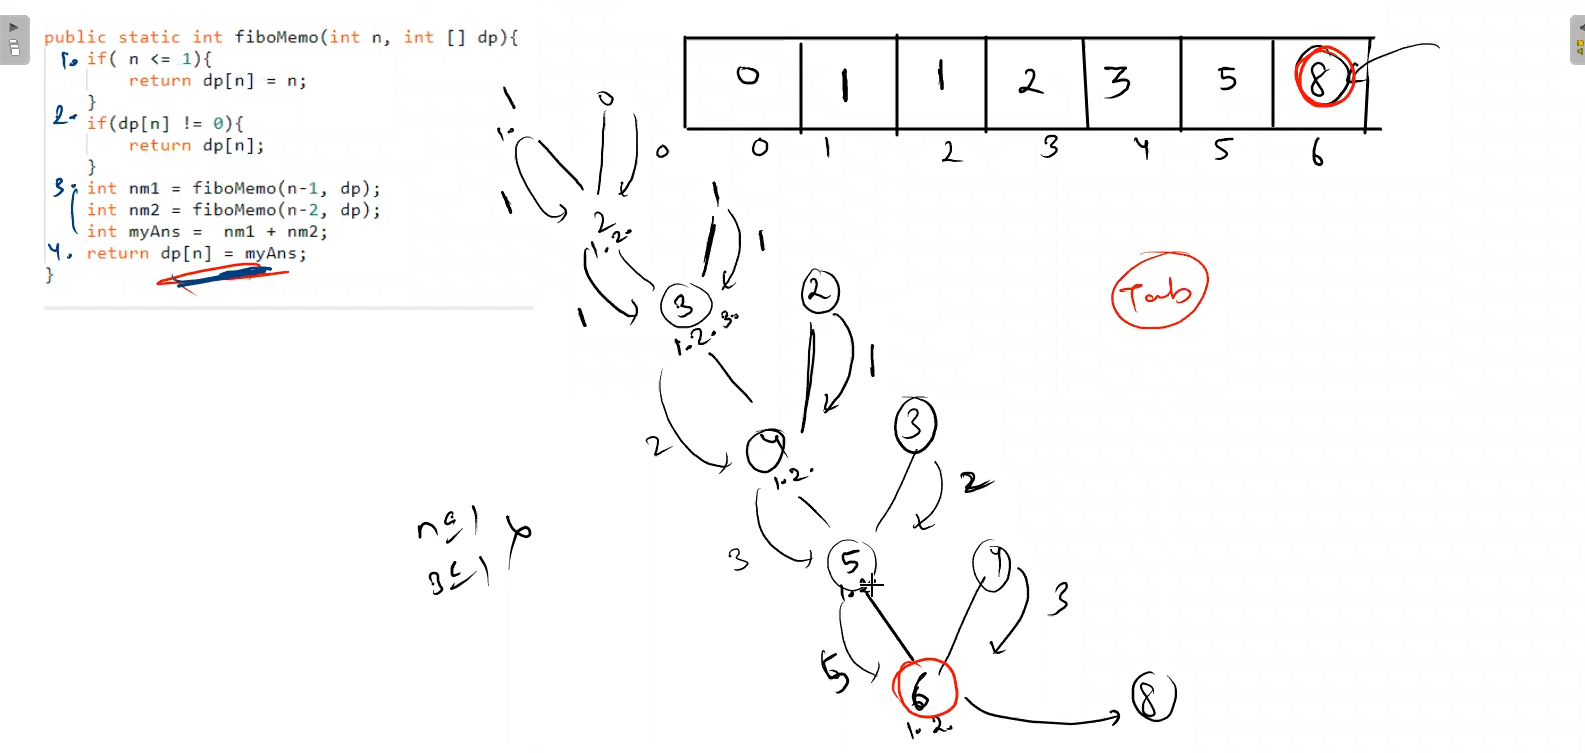 public static int fiboMemo(int n, int [] dp){
1. if( n <= 1){
return dp[n] = n;
}
2. if(dp[n] != 0){
return dp[n];
}
3. int nm1 = fiboMemo(n-1, dp);
int nm2 = fiboMemo(n-2, dp);
int myAns = nm1 + nm2;
4. return dp[n] = myAns;
}
0 1 1 2 3 5 8
0 0 1 2 3 4 5 6
1 0
1.
1
2
1. 2.
1
1
1
3
1. 2. 3.
2
1
Tab
2
4
1. 2.
3
2
3
5
1. 2.
4
3
5
6
1. 2.
8
n <= 1
3 <= 1